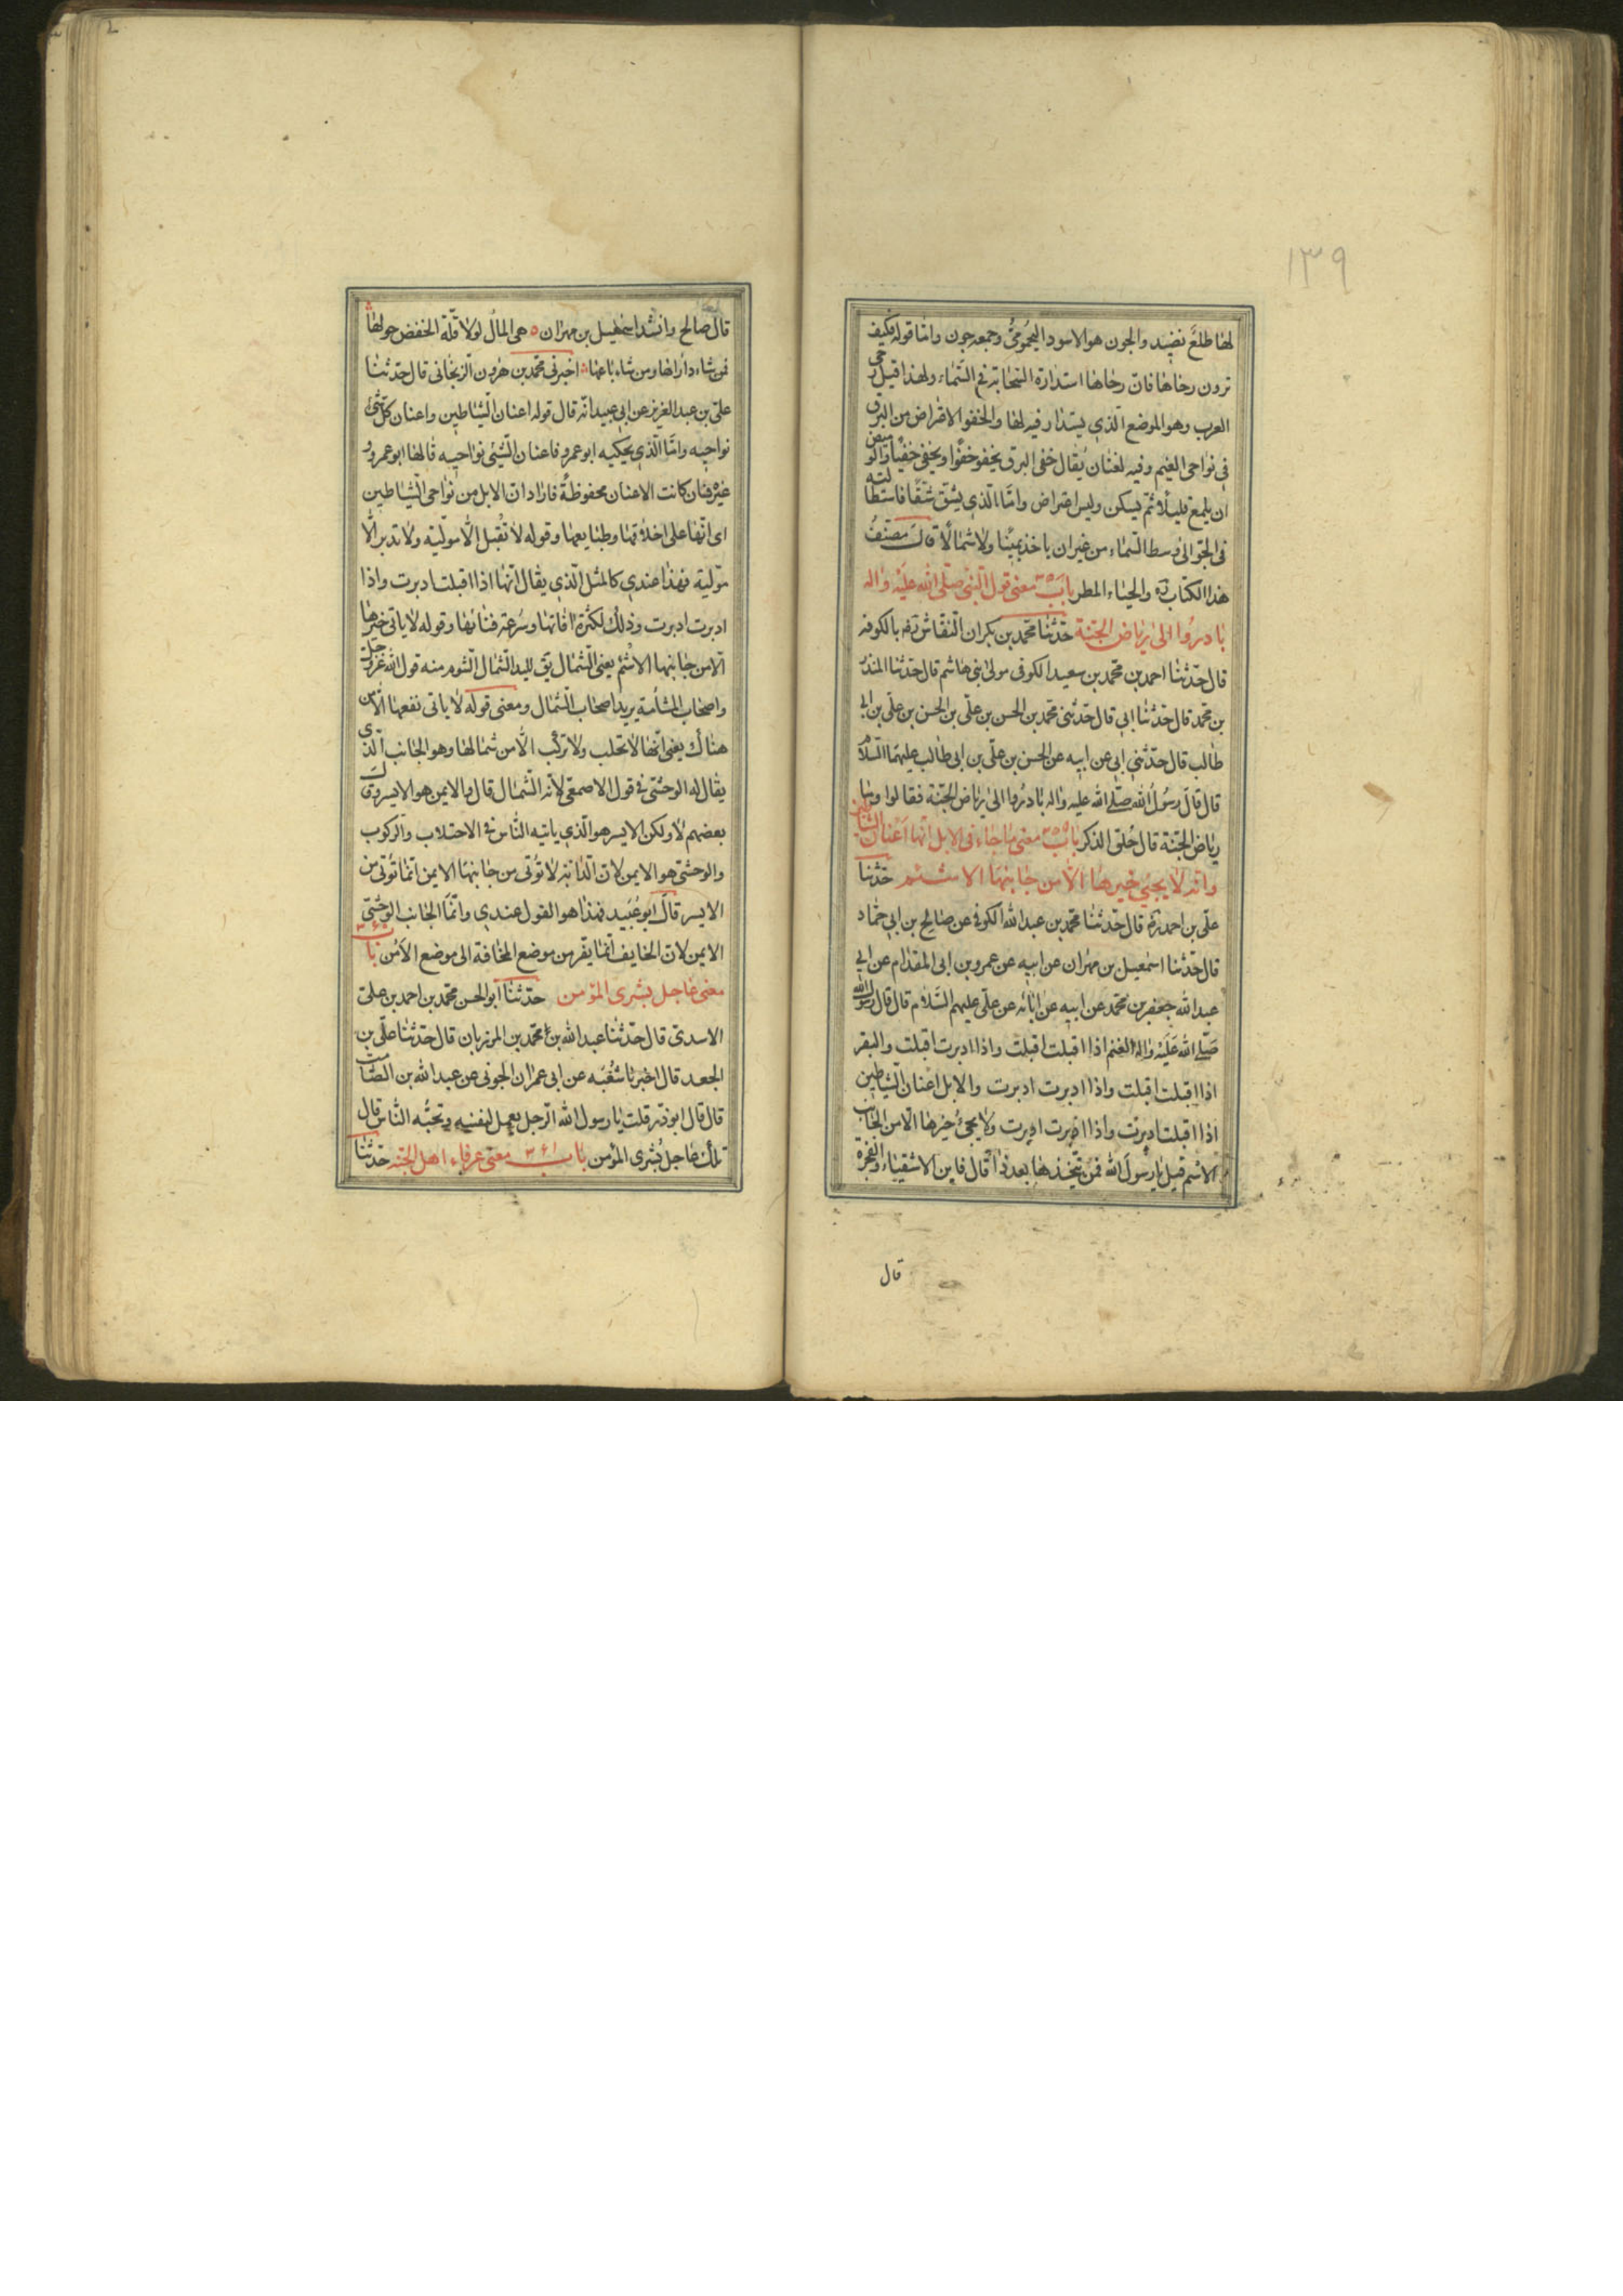 ١٣٩
لها طلع نضيد والجون هو الاسود اليحمومىّ وجمعه جون وامّا قوله فكيف
ترون رحاها فانّ رحاها استدارة السّحابة فى السّماء ولهذا قيل رحى
العرب وهو الموضع الّذى يستدار فيه لها والخفو الاقراض من البرق
فى نواحى الغيم وفيه لغتان يقال خفى البرق يخفو خفوًا ويخفى خفيًا والوميض
ان يلمع قليلًا ثمّ يسكن وليس اقراض وامّا الّذى يشقّ شقًّا فاستطالته
فى الجوّ الى وسط السّماء من غير ان ياخذ يمينًا ولا شمالًا قال مصنّف
هذا الكتاب ره والحياء المطر باب معنى قول النّبى صلّى الله عليه واله
بادروا الى رياض الجنّة حدّثنا محمّد بن بكران النّقاش ره بالكوفه
قال حدّثنا احمد بن محمّد بن سعيد الكوفى مولى بنى هاشم قال حدّثنا المنذر
بن محمّد قال حدّثنا ابى قال حدّثنى محمّد بن الحسن بن علىّ بن الحسن بن علىّ بن ابى
طالب قال حدّثنى ابى عن ابيه عن الحسن بن علىّ بن ابى طالب عليهما السّلام
قال قال رسول الله صلّى الله عليه واله بادروا الى رياض الجنّة فقالوا وما
رياض الجنّة قال حلق الذكر باب معنى ما جاء فى الابل انّها اعنان الشّياطين
وانّه لا يجئ خيرها الّا من جانبها الاشئم حدّثنا
علىّ بن احمد ره قال حدّثنا محمّد بن عبد الله الكوفى عن صالح بن ابى حمّاد
قال حدّثنا اسمعيل بن مهران عن ابيه عن عمرو بن ابى المقدام عن ابى
عبد الله جعفر بن محمّد عن ابيه عن ابائه عن علىّ عليهم السّلام قال قال رسول الله
صلّى الله عليه واله الغنم اذا اقبلت اقبلت واذا ادبرت اقبلت والبقر
اذا اقبلت اقبلت واذا ادبرت ادبرت والابل اعنان الشّياطين
اذا اقبلت ادبرت واذا ادبرت ادبرت ولا يجئ خيرها الّا من الجانب
الاشئم قيل يا رسول الله فمن يتّخذها بعد ذا قال فاين الاشقياء والفجرة
قال
قال صالح وانشد اسمعيل بن مهران ه هى المال لولا قلّة الخفض حولها
فمن شاء داراها ومن شاء باعها اخبرنى محمّد بن هرون الزّنجانى قال حدّثنا
علىّ بن عبد العزيز عن ابى عبيد انّه قال قوله اعنان الشّياطين واعنان كلّ شئ
نواحيه وامّا الّذى يحكيه ابو عمرو فاعنان الشّئ نواحيه قالها ابو عمرو و
غيره فان كانت الاعنان محفوظة فاراد انّ الابل من نواحى الشّياطين
اى انّها على اخلاقها وطبايعها وقوله لا تقبل الّا مولّية ولا تدبر الّا
مولّية فهذا عندى كالمثل الّذى يقال انّها اذا اقبلت ادبرت واذا
ادبرت ادبرت وذلك لكثرة افاتها وسرعة فنائها وقوله لا ياتى خيرها
الّا من جانبها الاشئم يعنى الشّمال يق لليد الشّمال الشّوم منه قول الله عزّ وجلّ
واصحاب المشأمة يريد اصحاب الشّمال ومعنى قوله لا ياتى نفعها الّا من
هناك يعنى انّها لا تحلب ولا تركب الّا من شمالها وهو الجانب الّذى
يقال له الوحشى فى قول الاصمعى لانّه الشّمال قال والايمن هو الايسر وقال
بعضهم لا ولكن الايسر هو الّذى ياتيه النّاس فى الاحتلاب والركوب
والوحشى هو الايمن لانّ الدّابّة لا تؤتى من جانبها الايمن انّما تؤتى من
الايسر قال ابو عبيد فهذا هو القول عندى وانّما الجانب الوحشىّ
الايمن لانّ الخايف انّما يفرّ من موضع المخافة الى موضع الامن باب ٣٦٠
معنى عاجل بشرى المؤمن حدّثنا ابو الحسن محمّد بن احمد بن علىّ
الاسدى قال حدّثنا عبد الله بن محمّد بن المرزبان قال حدّثنا علىّ بن
الجعد قال اخبرنا شعبه عن ابى عمران الجونى عن عبد الله بن الصّامت
قال قال ابو ذرّ قلت يا رسول الله الرّجل يعمل لنفسه وتحبّه النّاس قال
تلك عاجل بشرى المؤمن باب ٣٦١ معنى عرفاء اهل الجنّه حدّثنا